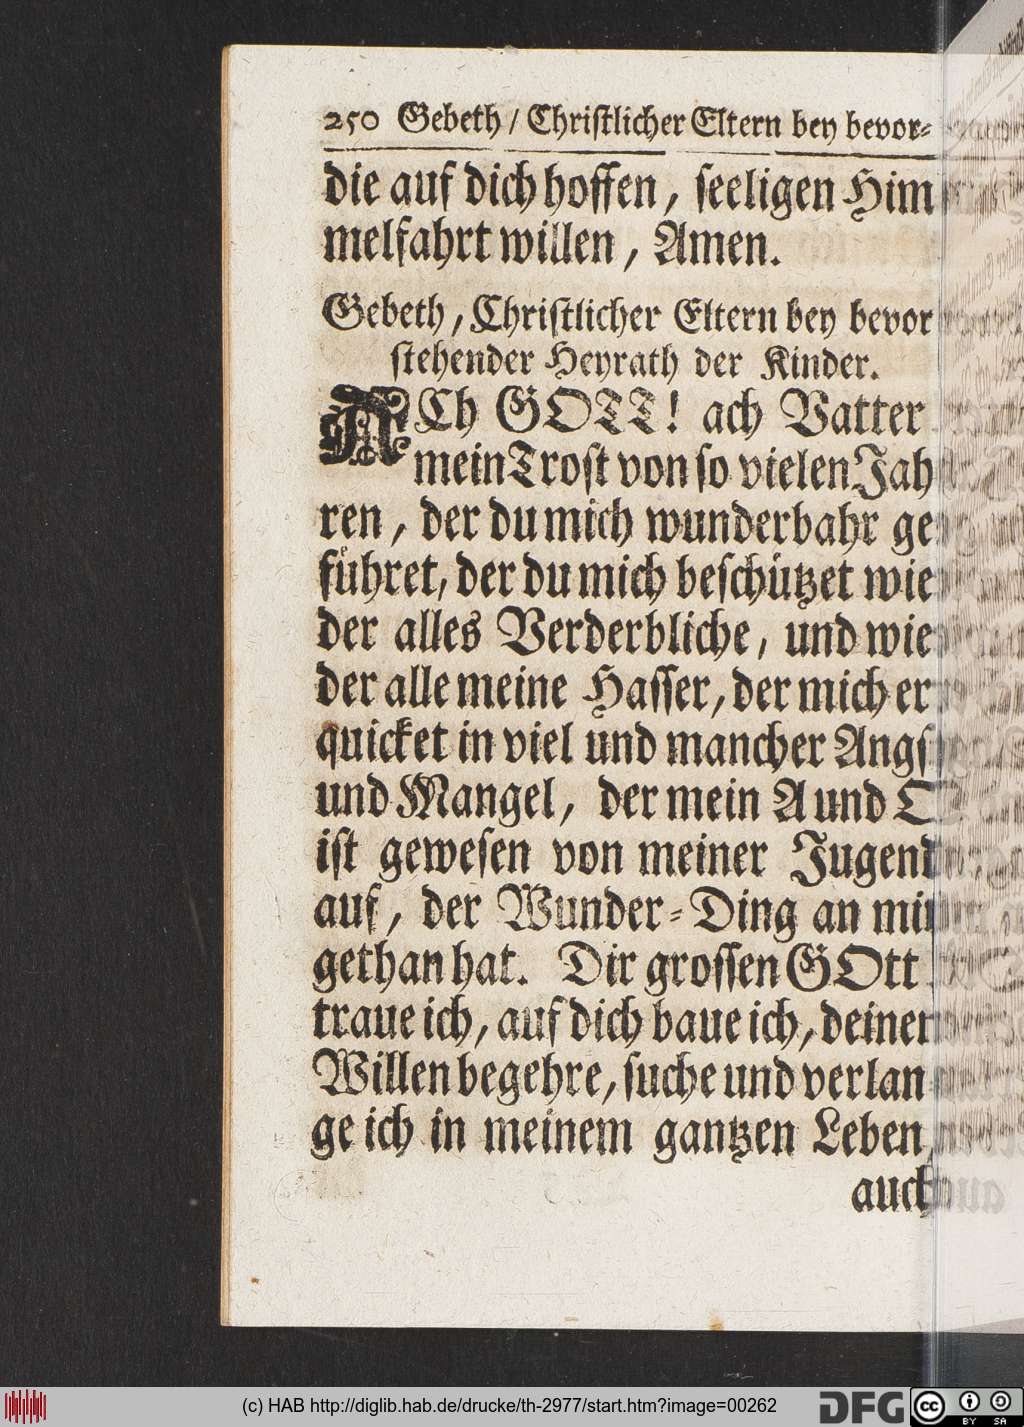 250 Gebeth / Christlicher Eltern bey bevor=
die auf dich hoffen, seeligen Him
melfahrt willen, Amen.
Gebeth, Christlicher Eltern bey bevor
stehender Heyrath der Kinder.
ACh GOTT! ach Vatter
mein Trost von so vielen Jah
ren, der du mich wunderbahr ge
führet, der du mich beschützet wie
der alles Verderbliche, und wie
der alle meine Hasser, der mich er
quicket in viel und mancher Angs
und Mangel, der mein A und
ist gewesen von meiner Jugend
auf, der Wunder=Ding an mir
gethan hat. Dir grossen GOtt
traue ich, auf dich baue ich, deinen
Willen begehre, suche und verlan
ge ich in meinem gantzen Leben,
auch
(c) HAB http://diglib.hab.de/drucke/th-2977/start.htm?image=00262
DFG
cc BY SA